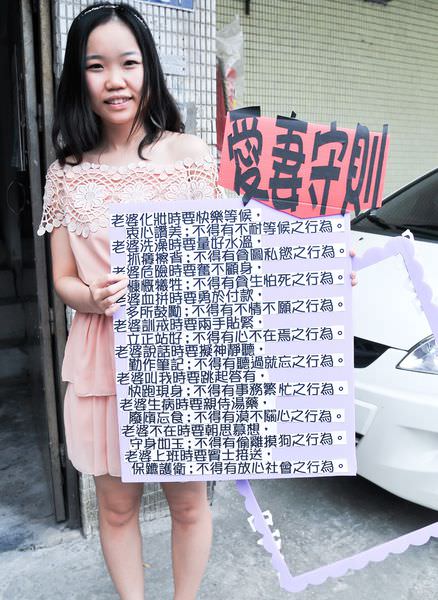 愛妻守則
老婆化妝時要快樂等候，
衷心讚美；不得有不耐等候之行為。
老婆洗澡時要量好水溫，
抓癢擦背；不得有貪圖私慾之行為。
老婆危險時要奮不顧身，
慷慨犧牲；不得有貪生怕死之行為。
老婆血拼時要勇於付款，
多所鼓勵；不得有不情不願之行為。
老婆訓戒時要兩手貼緊，
立正站好；不得有心不在焉之行為。
老婆說話時要擬神靜聽，
勤作筆記；不得有聽過就忘之行為。
老婆叫我時要跳起答有，
快跑現身；不得有事務繁忙之行為。
老婆生病時要親侍湯藥，
廢寢忘食；不得有漠不關心之行為。
老婆不在時要朝思慕想，
守身如玉；不得有偷雞摸狗之行為。
老婆上班時要賓士接送，
保鑣護衛；不得有放心社會之行為。